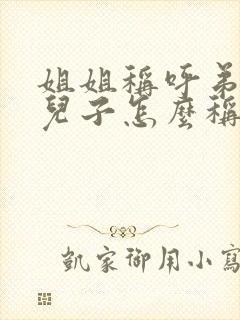 姐姐稱呼弟
兒子怎麼稱
凱家御用小寫